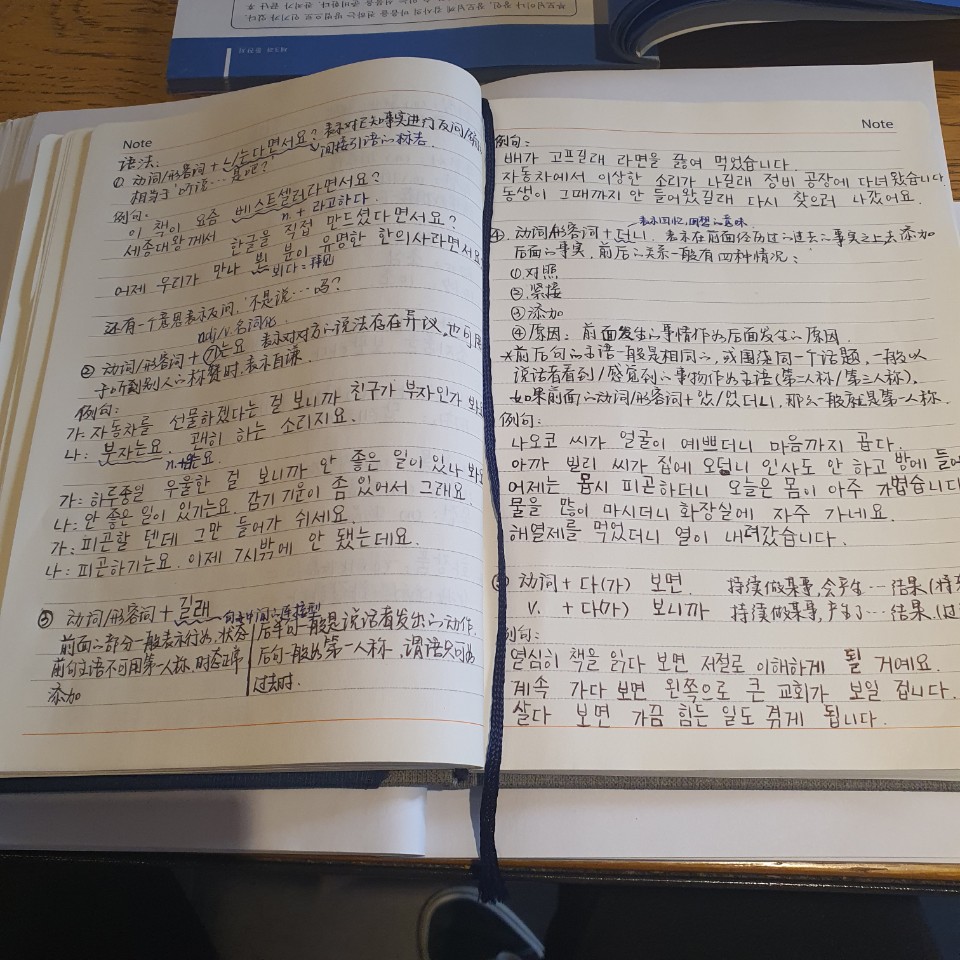 부모님이나 응원, 장모님께 감사의 마음을 전하는 방법으로 인기가 있다.
Note
语法:
① 动词/形容词 + ㄴ/는다면서요? 表示对已知事实进行反问/
相当于 '听说… 是吧?' 间接引语的标志.
例句.
이 책이 요즘 베스트셀러라면서요?
n. + 라고하다.
세종대왕께서 한글을 직접 만드셨다면서요?
어제 우리가 만나 뵌 분이 유명한 한의사라면서요
뵈다=拜见
还有一个意思表示反问, '不是说……吗?'
adj/v.名词化
② 动词/形容词 + 기는요 表示对对方的说法存在异议, 也可用
于听到别人的称赞时, 表示自谦.
例句:
가: 자동차를 선물하겠다는 걸 보니까 친구가 부자인가 봐
나: 부자는요. 괜히 하는 소리지요.
n.+는요
가: 하루종일 우울한 걸 보니까 안 좋은 일이 있나 봐요
나: 안 좋은 일이 있기는요. 감기 기운이 좀 있어서 그래요.
가: 피곤할 텐데 그만 들어가 쉬세요.
나: 피곤하기는요. 이제 7시밖에 안 됐는데요.
③ 动词/形容词 + 길래 句中间的连接型
前面的部分一般表示行为, 状态 后半句一般是说话者发出的动作.
前句主语不可用第一人称. 时态正常 后句一般为第一人称, 谓语只可为
添加 过去时.
Note
例句:
배가 고프길래 라면을 끓여 먹었습니다.
자동차에서 이상한 소리가 나길래 정비 공장에 다녀왔습니다
동생이 그때까지 안 들어왔길래 다시 찾으러 나갔어요.
表示回忆, 回想的意味
④ 动词/形容词 + 더니. 表示在前面经历过的过去的事实之上去添加
后面的事实. 前后的关系一般有四种情况:
①.对照
②.紧接
③添加
④原因: 前面发生的事情作为后面发生的原因.
*前后句的主语一般是相同的, 或围绕同一个话题, 一般以
说话者看到/感觉到的事物作为主语(第二人称/第三人称).
*如果前面的动词/形容词 + 았/었더니, 那么一般就是第一人称.
例句:
나오코 씨가 얼굴이 예쁘더니 마음까지 곱다.
아까 빌리 씨가 집에 오더니 인사도 안 하고 방에 들어
어제는 몹시 피곤하더니 오늘은 몸이 아주 가볍습니다
물을 많이 마시더니 화장실에 자주 가네요.
해열제를 먹었더니 열이 내려갔습니다.
动词 + 다(가) 보면 持续做某事, 会产生…结果(持
V. + 다(가) 보니까 持续做某事, 产生了…结果.(过
例句:
열심히 책을 읽다 보면 저절로 이해하게 될 거예요.
계속 가다 보면 왼쪽으로 큰 교회가 보일 겁니다.
살다 보면 가끔 힘든 일도 겪게 됩니다.